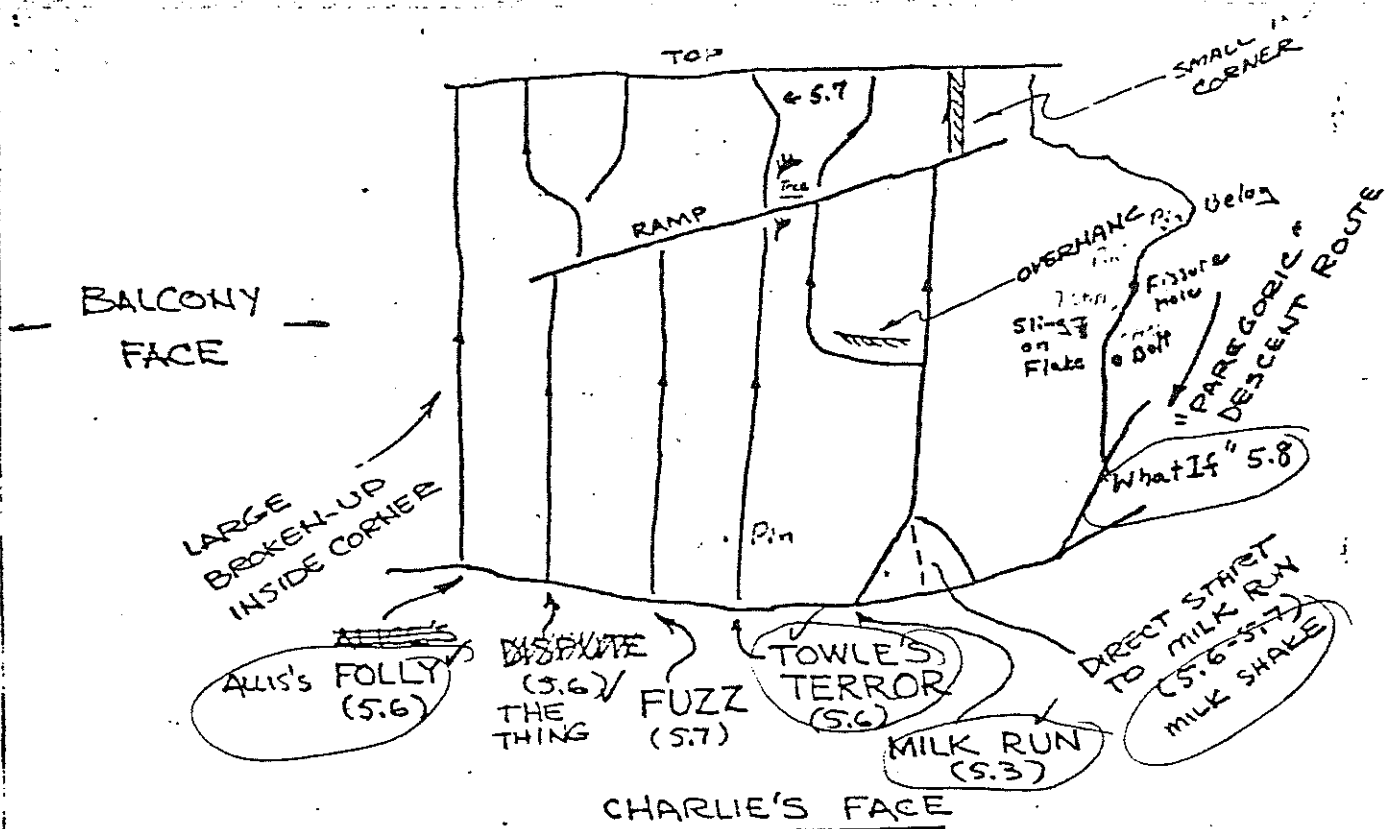 TOP
SMALL
CORNER
← 5.7
Tree
RAMP
OVERHANG
Pin Belay
Pin
Fissure
Hole
Slings
on
Flake
Bolt
"PAREGORIC"
DESCENT ROUTE
BALCONY
FACE
"What If" 5.8
LARGE
BROKEN-UP
INSIDE CORNER
Pin
DIRECT START
TO MILK RUN
(5.6-5.7)
MILK SHAKE
ALLIS'S FOLLY
(5.6)
(5.6)
THE
THING
FUZZ
(5.7)
TOWLE'S
TERROR
(5.6)
MILK RUN
(5.3)
CHARLIE'S FACE